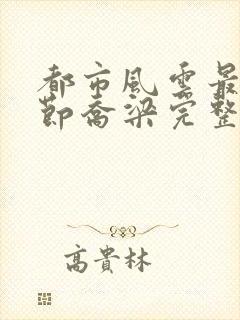 都市風雲最
節喬梁完整
高貴林